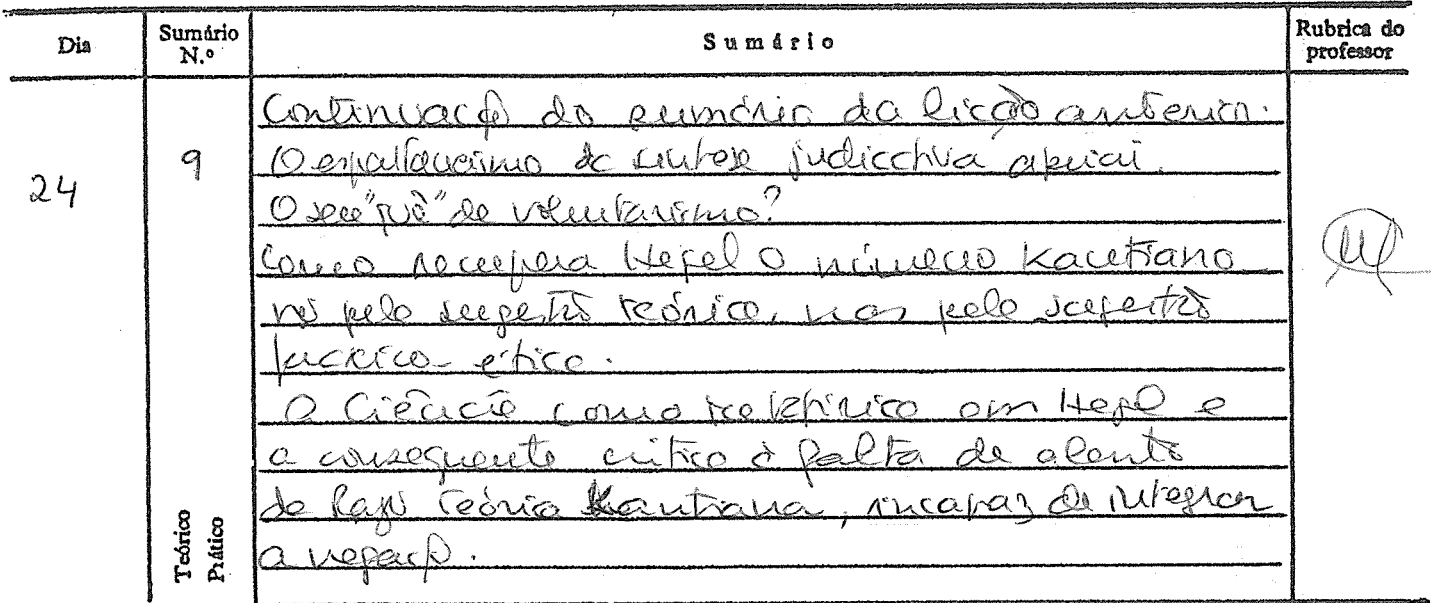 Dia
Sumário N.º
Sumário
Rubrica do professor
24
9
Continuação do sumário da lição anterior.
O da síntese judicativa apriori.
O seu "quê" de voluntarismo?
Como recupera Hegel o número Kantiano
não pela sugestão teórica, mas pela sugestão
prático-ética.
A Ciência como metafísica em Hegel e
a consequente crítica à falta de alento
da Razão Teórica Kantiana, incapaz de integrar
a negação.
Teórico
Prático